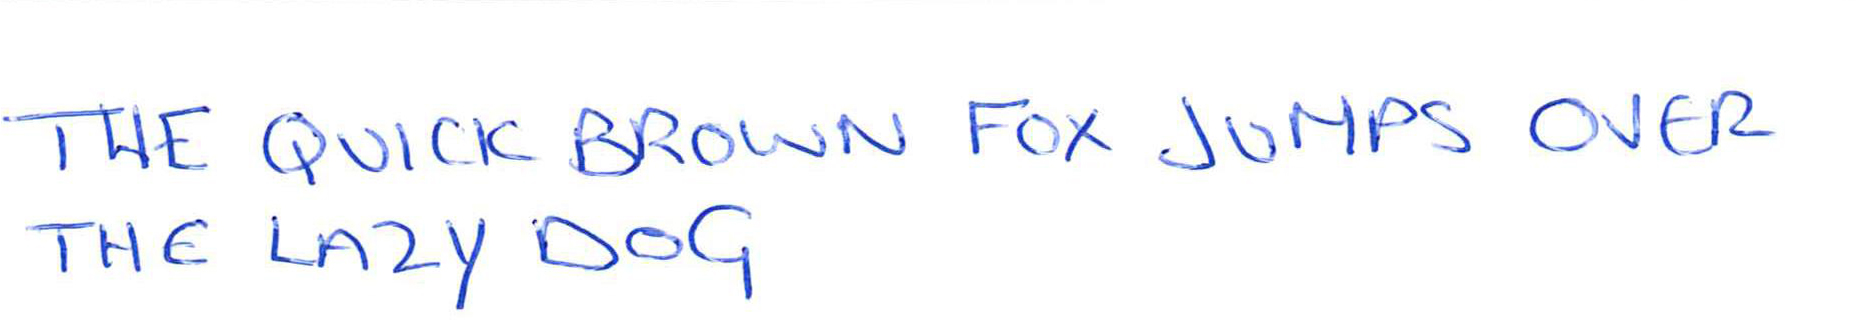 THE QUICK BROWN FOX JUMPS OVER
THE LAZY DOG